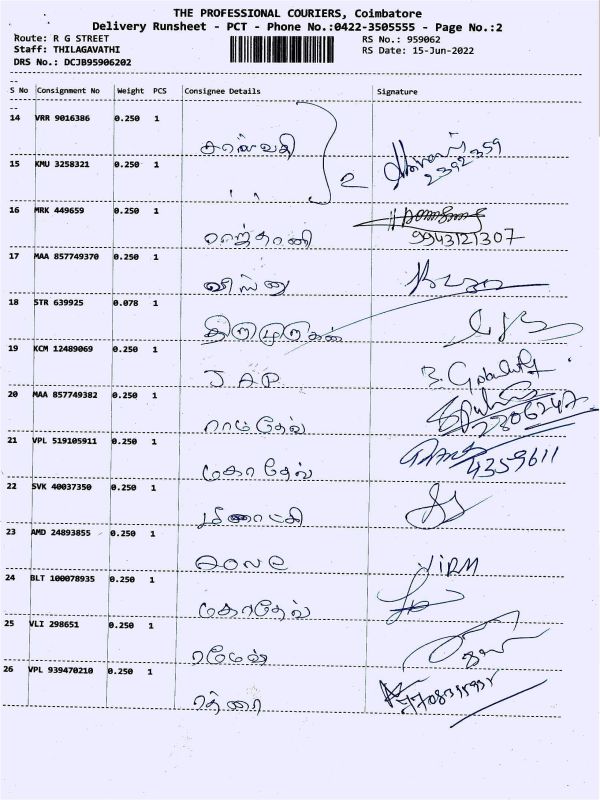 THE PROFESSIONAL COURIERS, Coimbatore
Delivery Runsheet - PCT - Phone No.:0422-3505555 - Page No.:2
Route: R G STREET
RS No.: 959062
Staff: THILAGAVATHI
RS Date: 15-Jun-2022
DRS No.: DCJB95906202
S No Consignment No Weight PCS Consignee Details Signature
14 VRR 9016386 0.250 1
15 KMU 3258321 0.250 1 2 2392359
16 MRK 449659 0.250 1 ராஜ்தானி 9943121307
17 MAA 857749370 0.250 1 விஸ்னு
18 STR 639925 0.078 1 திருமுருகன்
19 KCM 12489069 0.250 1 JAP
20 MAA 857749382 0.250 1 ராம்தேவ்
21 VPL 519105911 0.250 1 மகாதேவ் 4359611
22 SVK 40037350 0.250 1 மீனாட்சி
23 AMD 24893855 0.250 1
24 BLT 100078935 0.250 1 மகாதேவ்
25 VLI 298651 0.250 1 ரமேஷ்
26 VPL 939470210 0.250 1